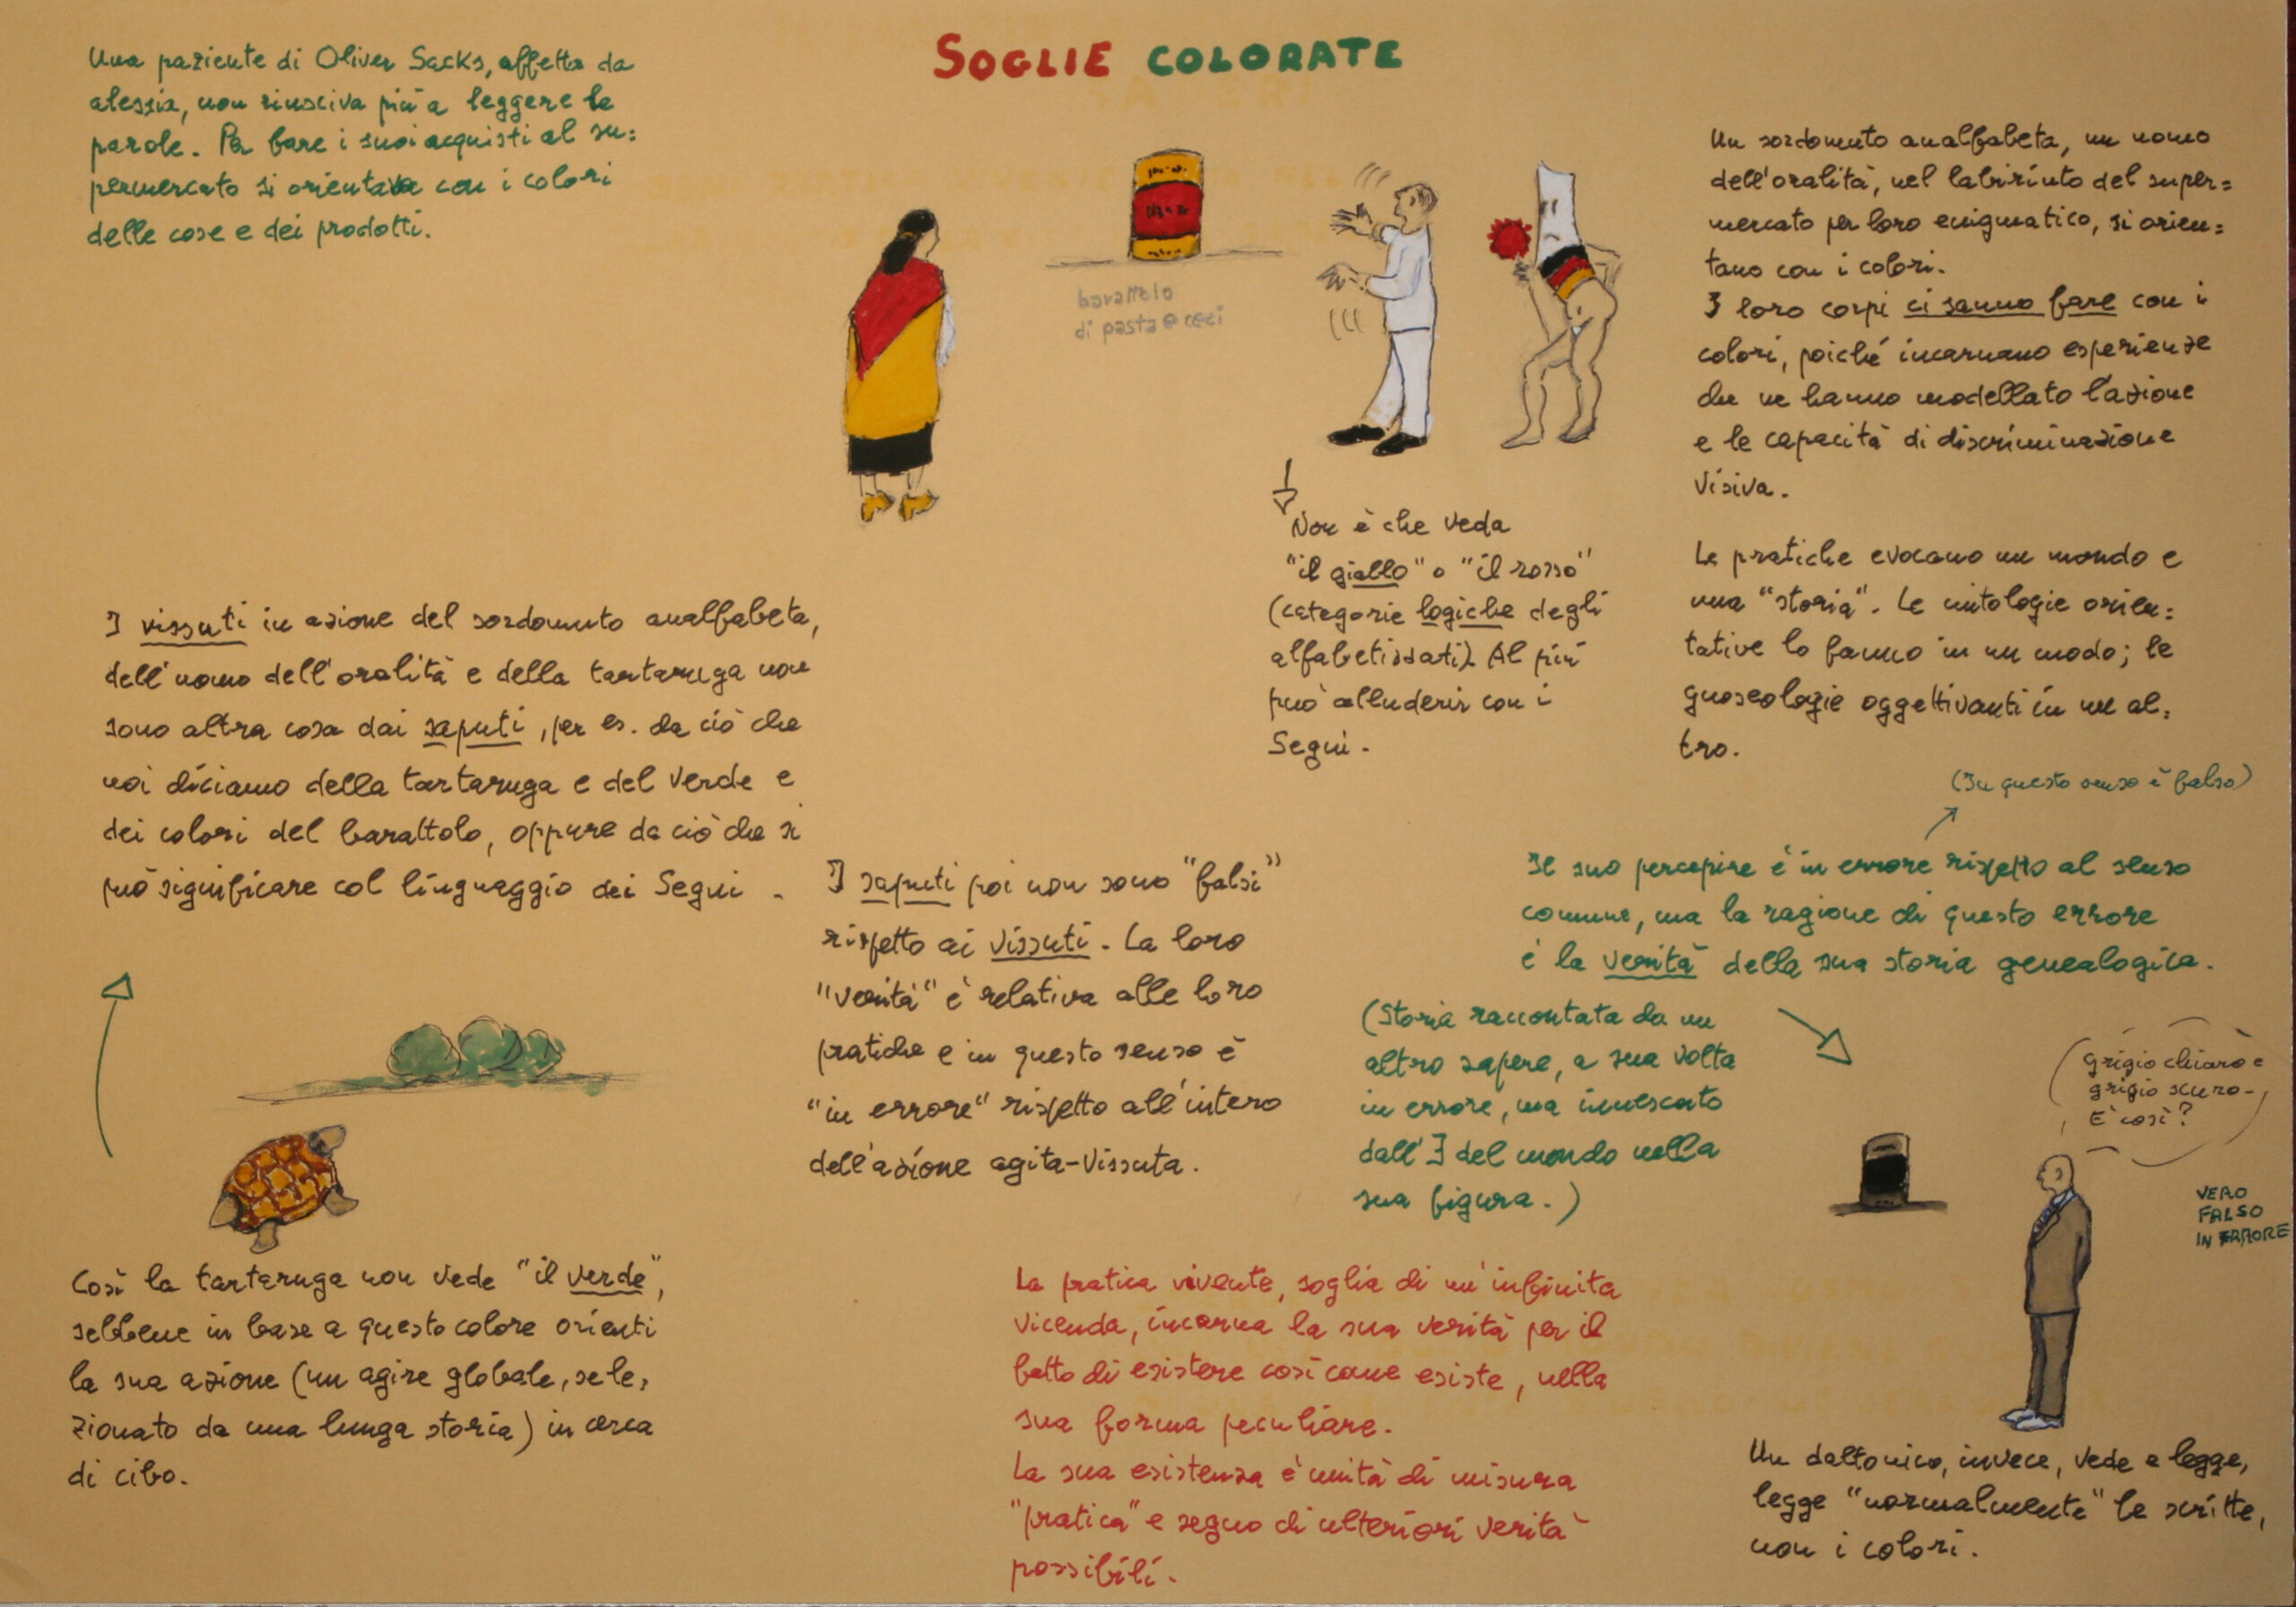 SOGLIE COLORATE
Una paziente di Oliver Sacks, affetta da
alessia, non riusciva più a leggere le
parole. Per fare i suoi acquisti al su=
permercato si orientava con i colori
delle cose e dei prodotti.
barattolo
di pasta e ceci
Un sordomuto analfabeta, un uomo
dell'oralità, nel labirinto del super=
mercato per loro enigmatico, si orien=
tano con i colori.
I loro corpi ci sanno fare con i
colori, poiché incarnano esperienze
che ne hanno modellato l'azione
e le capacità di discriminazione
visiva.
Le pratiche evocano un mondo e
una "storia". Le mitologie orien=
tative lo fanno in un modo; le
gnoseologie oggettivanti in un al=
tro.
Non è che veda
"il giallo" o "il rosso"
(categorie logiche degli
alfabetizzati). Al più
può alludervi con i
Segni.
I vissuti in azione del sordomuto analfabeta,
dell'uomo dell'oralità e della tartaruga non
sono altra cosa dai saputi, per es. da ciò che
noi diciamo della tartaruga e del verde e
dei colori del barattolo, oppure da ciò che si
può significare col linguaggio dei Segni.
I saputi poi non sono "falsi"
rispetto ai vissuti. La loro
"verità" è relativa alle loro
pratiche e in questo senso è
"in errore" rispetto all'intero
dell'azione agita-vissuta.
(In questo senso è falso)
Il suo percepire è in errore rispetto al senso
comune, ma la ragione di questo errore
è la verità della sua storia genealogica.
(Storia raccontata da un
altro sapere, a sua volta
in errore, ma innescato
dall'∃ del mondo nella
sua figura.)
Grigio chiaro e
grigio scuro-
E' così?
VERO
FALSO
IN ERRORE
Così la tartaruga non vede "il verde",
sebbene in base a questo colore orienti
la sua azione (un agire globale, sele=
zionato da una lunga storia) in cerca
di cibo.
La pratica vivente, soglia di un'infinita
vicenda, incarna la sua verità per il
fatto di esistere così come esiste, nella
sua forma peculiare.
La sua esistenza è unità di misura
"pratica" e segno di ulteriori verità
possibili.
Un daltonico, invece, vede e legge,
legge "normalmente" le scritte,
non i colori.